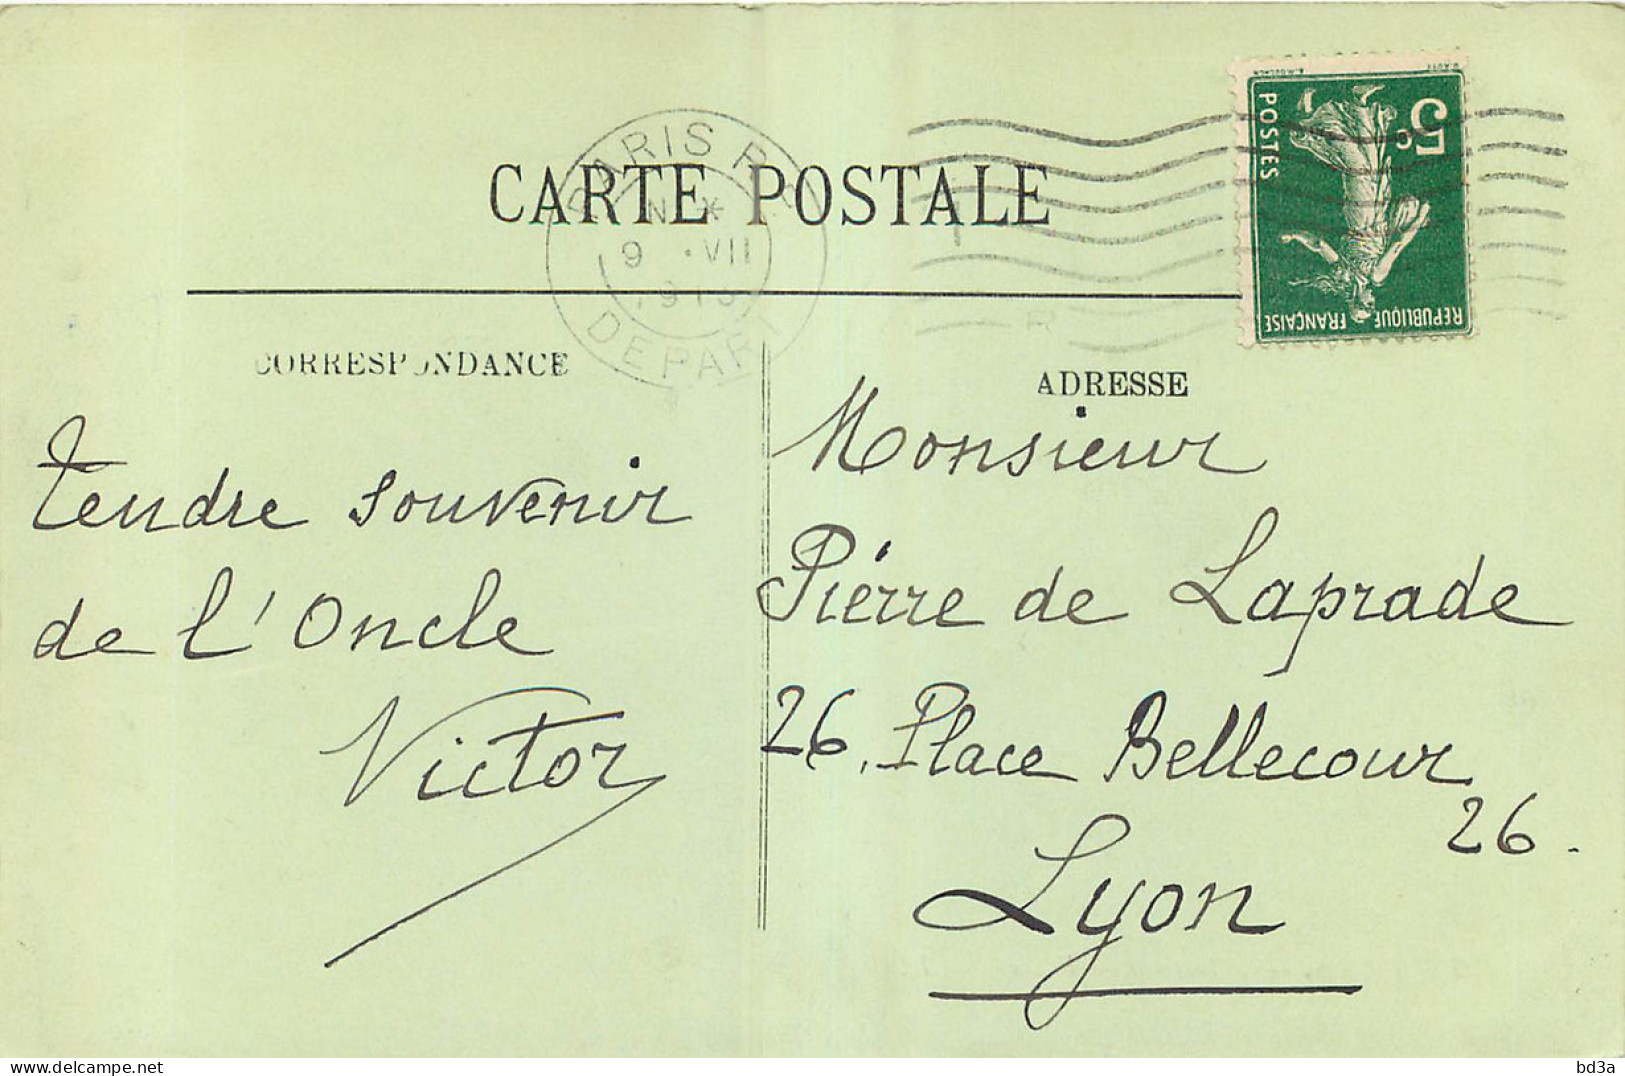 CARTE POSTALE
PARIS
9 VII
DEPART
5c
POSTES
REPUBLIQUE FRANÇAISE
CORRESPONDANCE
Tendre souvenir
de l'Oncle
Victor
ADRESSE
Monsieur
Piérre de Laprade
26, Place Bellecour
26.
Lyon
bd3a